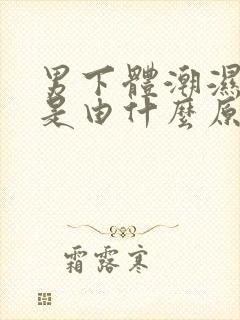 男下體潮濕
是由什麼原
霜露寒